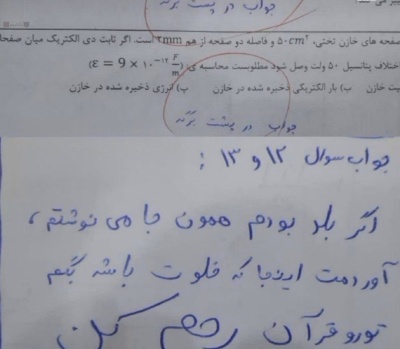 جواب در پشت برگه
صفحه های خازن تختی، ۵۰cm² و فاصله دو صفحه از هم ۲mm است. اگر ثابت دی الکتریک میان صفحا
اختلاف پتانسیل ۵۰ ولت وصل شود مطلوبست محاسبه ی: (ε = 9 × ۱۰⁻¹² F/m)
یت خازن ب) بار الکتریکی ذخیره شده در خازن پ) انرژی ذخیره شده در خازن
جواب در پشت برگه
جواب سوال ۱۲ و ۱۳ :
اگر بلد بودم همون جا می نوشتم ،
آوردمت اینجا که خلوت باشه بگم
تورو قرآن رحم کن